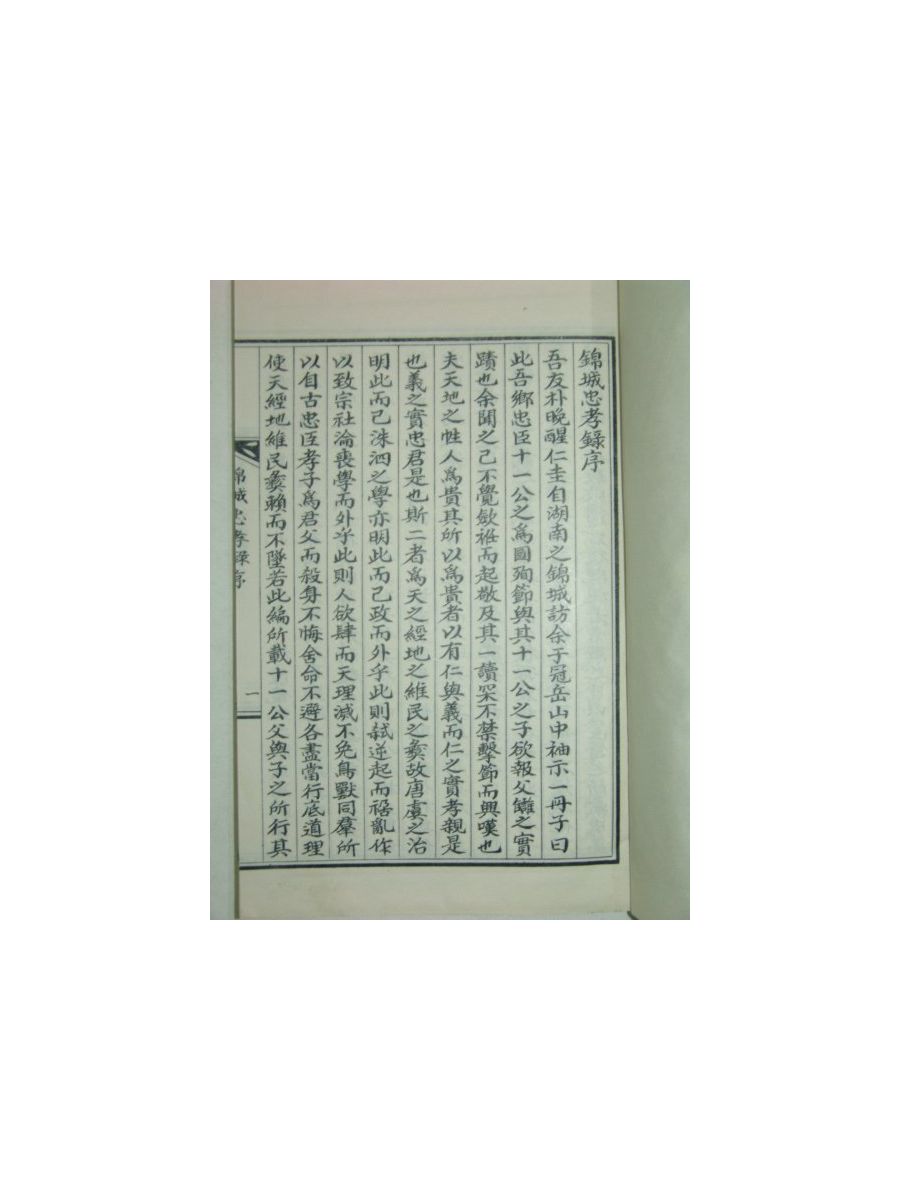 錦城忠孝錄序
吾友朴晚醒仁圭自湖南之錦城訪余于冠岳山中袖示一冊子曰
此吾鄉忠臣十一公之爲國殉節與其十一公之子欲報父讎之實
蹟也余聞之已不覺斂袵而起敬及其一讀罙不禁擊節而興嘆也
夫天地之性人爲貴其所以爲貴者以有仁與義而仁之實孝親是
也義之實忠君是也斯二者爲天之經地之維民之彜故唐虞之治
明此而已洙泗之學亦明此而已政而外乎此則弑逆起而禍亂作
以致宗社淪喪學而外乎此則人欲肆而天理滅不免鳥獸同羣所
以自古忠臣孝子爲君父而殺身不悔舍命不避各盡當行底道理
使天經地維民彜賴而不墜若此編所載十一公父與子之所行其
錦城忠孝錄序
一